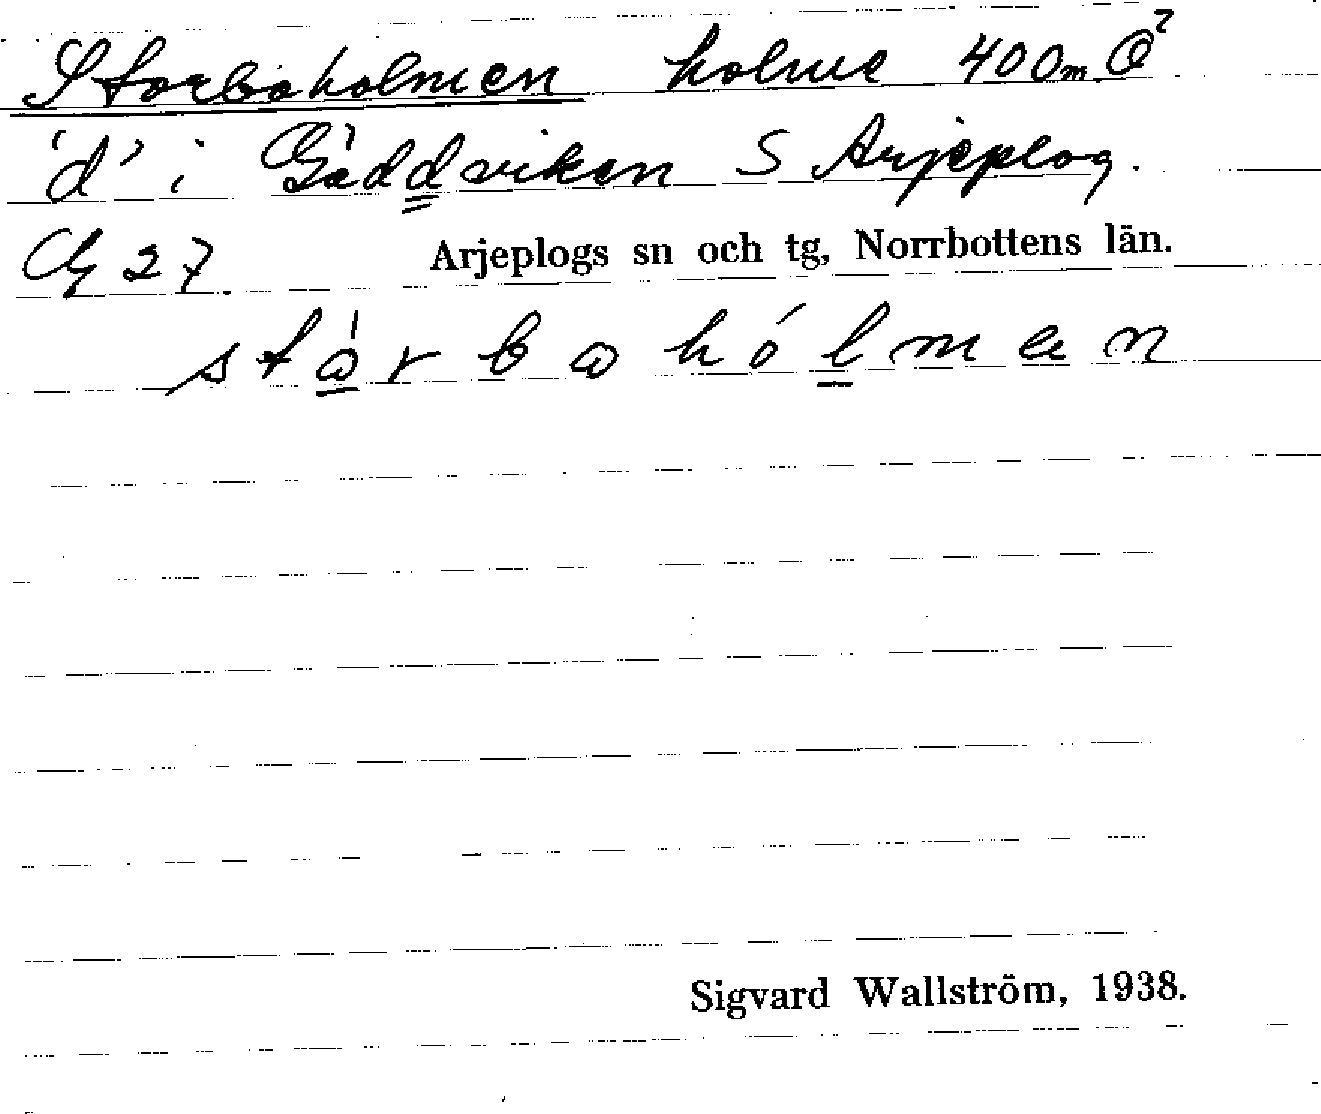 Storbaholmen holme 400m Ö
'd' i Gäddviken S Arjeplog.
G 27 Arjeplogs sn och tg, Norrbottens län.
stòrbahólmen
Sigvard Wallström, 1938.